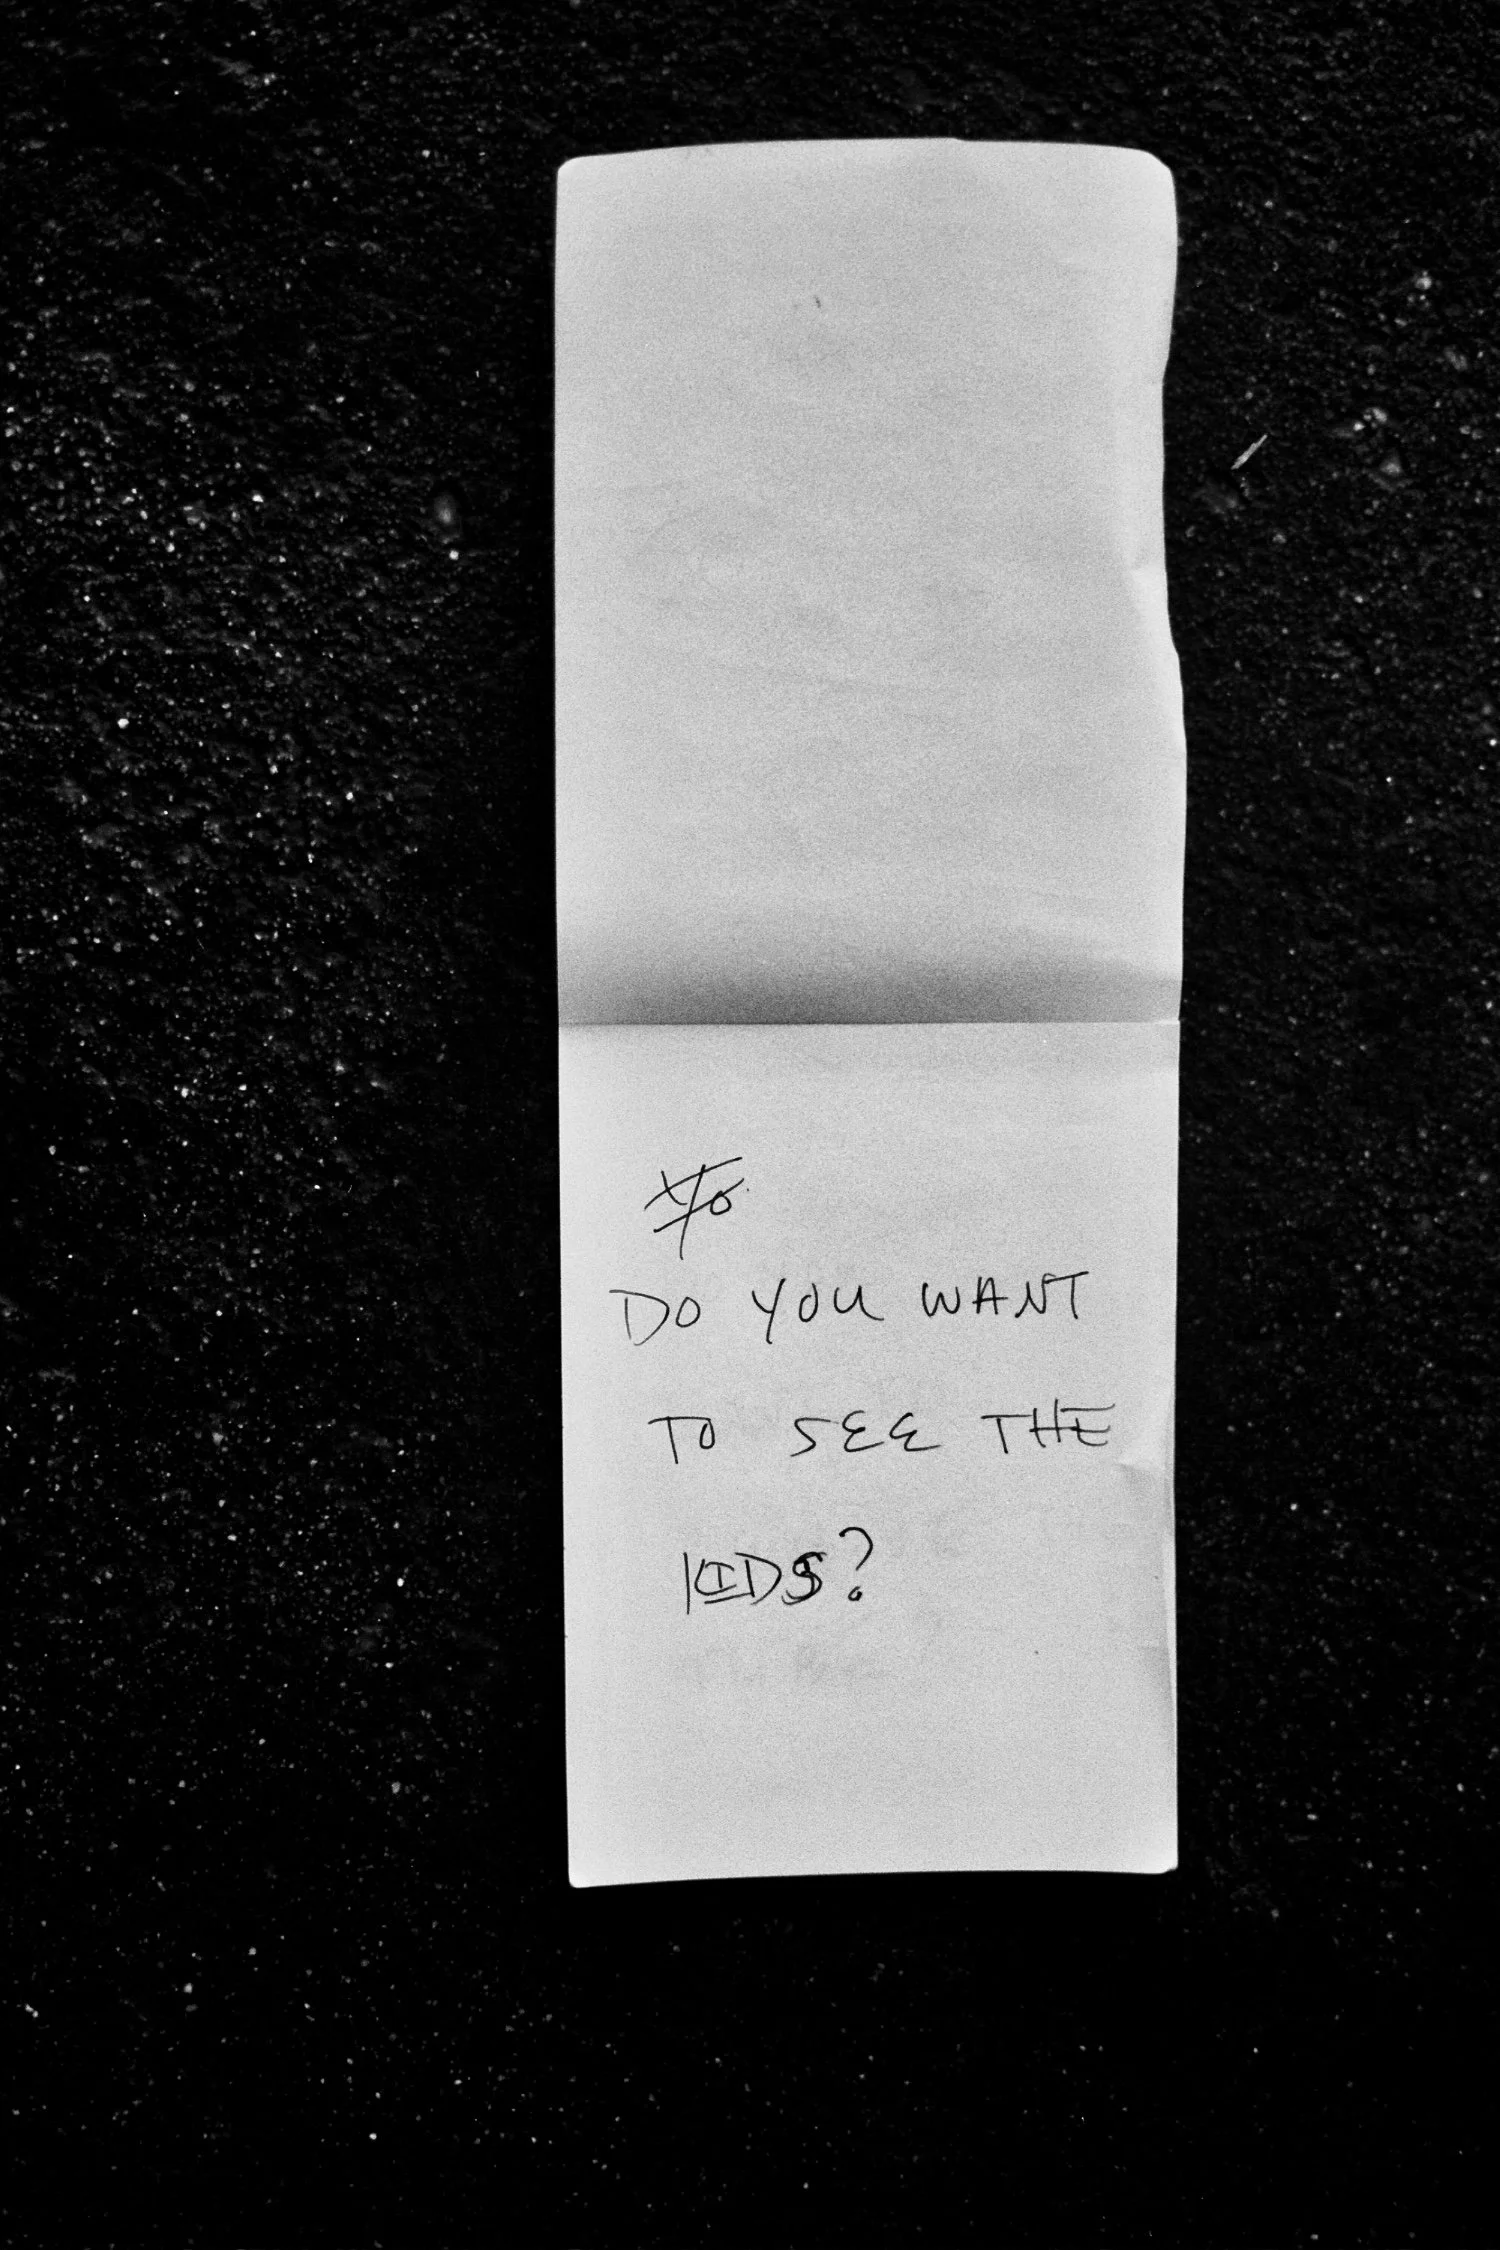 DO YOU WANT
TO SEE THE
KIDS?